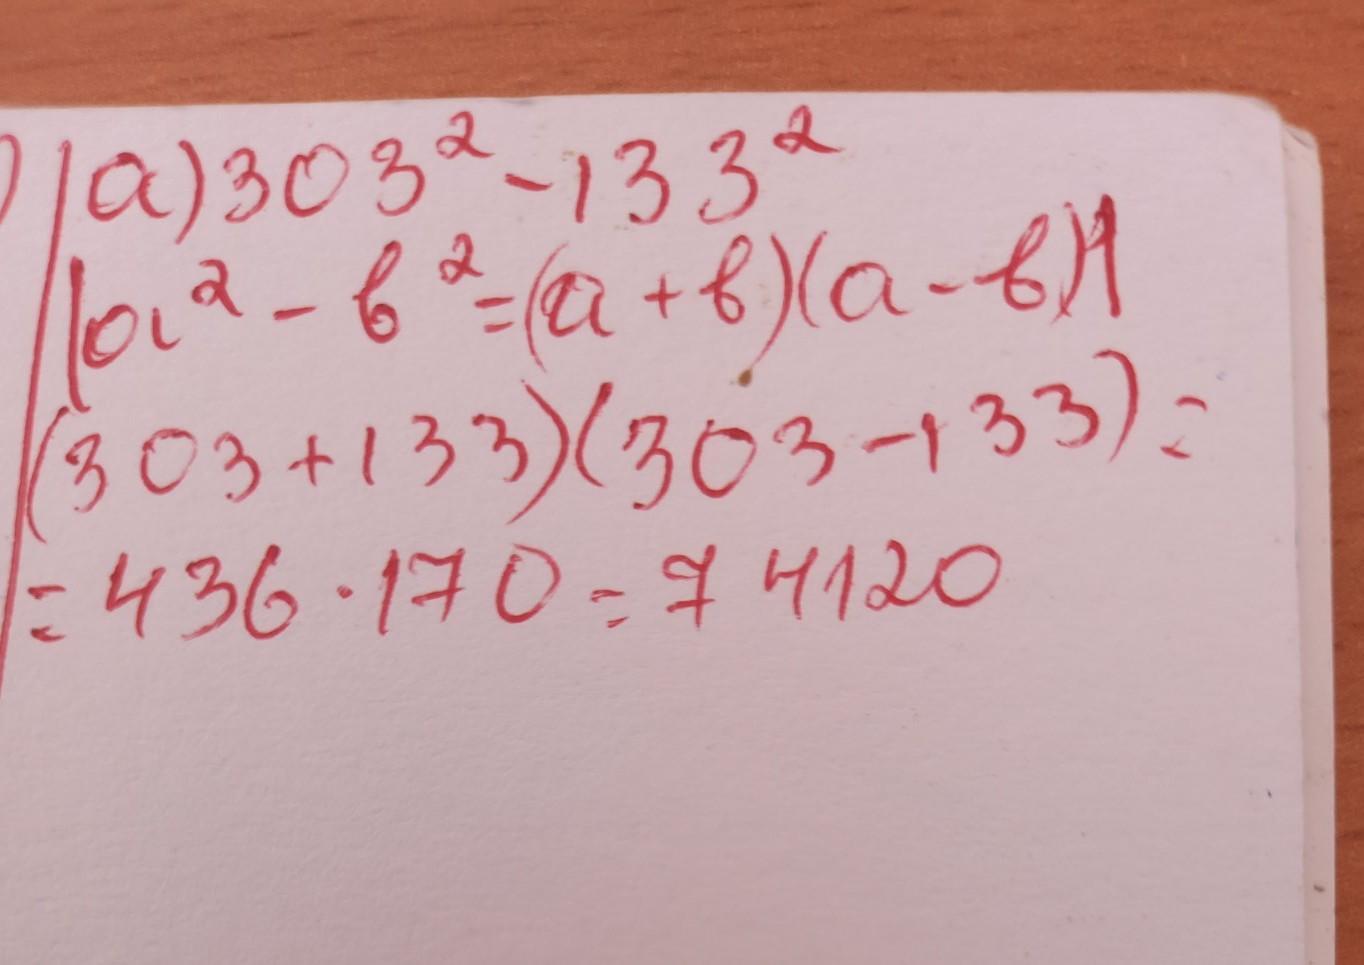 а) 303² - 133²
|а² - в² = (а + в)(а - в)|
(303 + 133)(303 - 133) =
= 436 · 170 = 74120